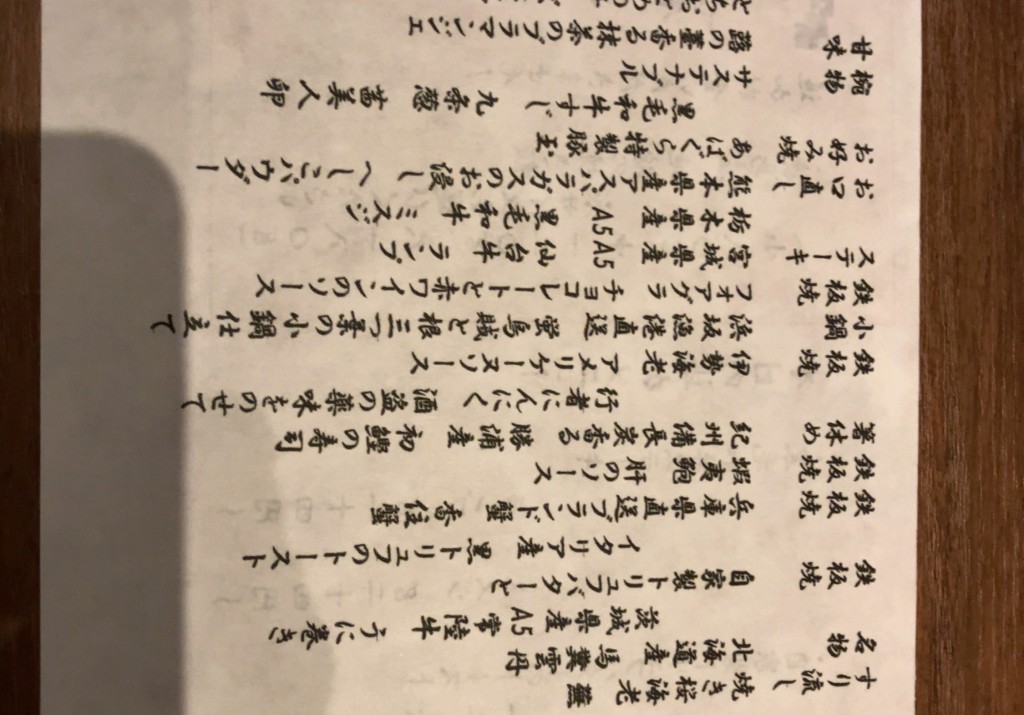 すり流し 焼き桜海老 蕪
名物 北海道産 馬糞雲丹
茨城県産 A5 常陸牛 うに巻き
鉄板焼 自家製トリュフバターと
イタリア産 黒トリュフのトースト
鉄板焼 兵庫県直送ブランド蟹 香住蟹
鉄板焼 蝦夷鮑 肝のソース
箸休め 紀州備長炭香る 勝浦産 初鰹の寿司
行者にんにく 酒盗の薬味をのせて
鉄板焼 伊勢海老 アメリケーヌソース
小鍋 浜坂漁港直送 蛍烏賊と根三つ葉の小鍋仕立て
鉄板焼 フォアグラ チョコレートと赤ワインのソース
ステーキ 宮城県産 A5 仙台牛 ランプ
栃木県産 A5 黒毛和牛 ミスジ
お口直し 熊本県産アスパラガスのお浸し へしこパウダー
お好み焼 あばぐら特製 豚玉
黒毛和牛すじ 九条葱 茜美人卵
椀物 サステナブル
甘味 蕗の薹香る抹茶のブラマンジェ